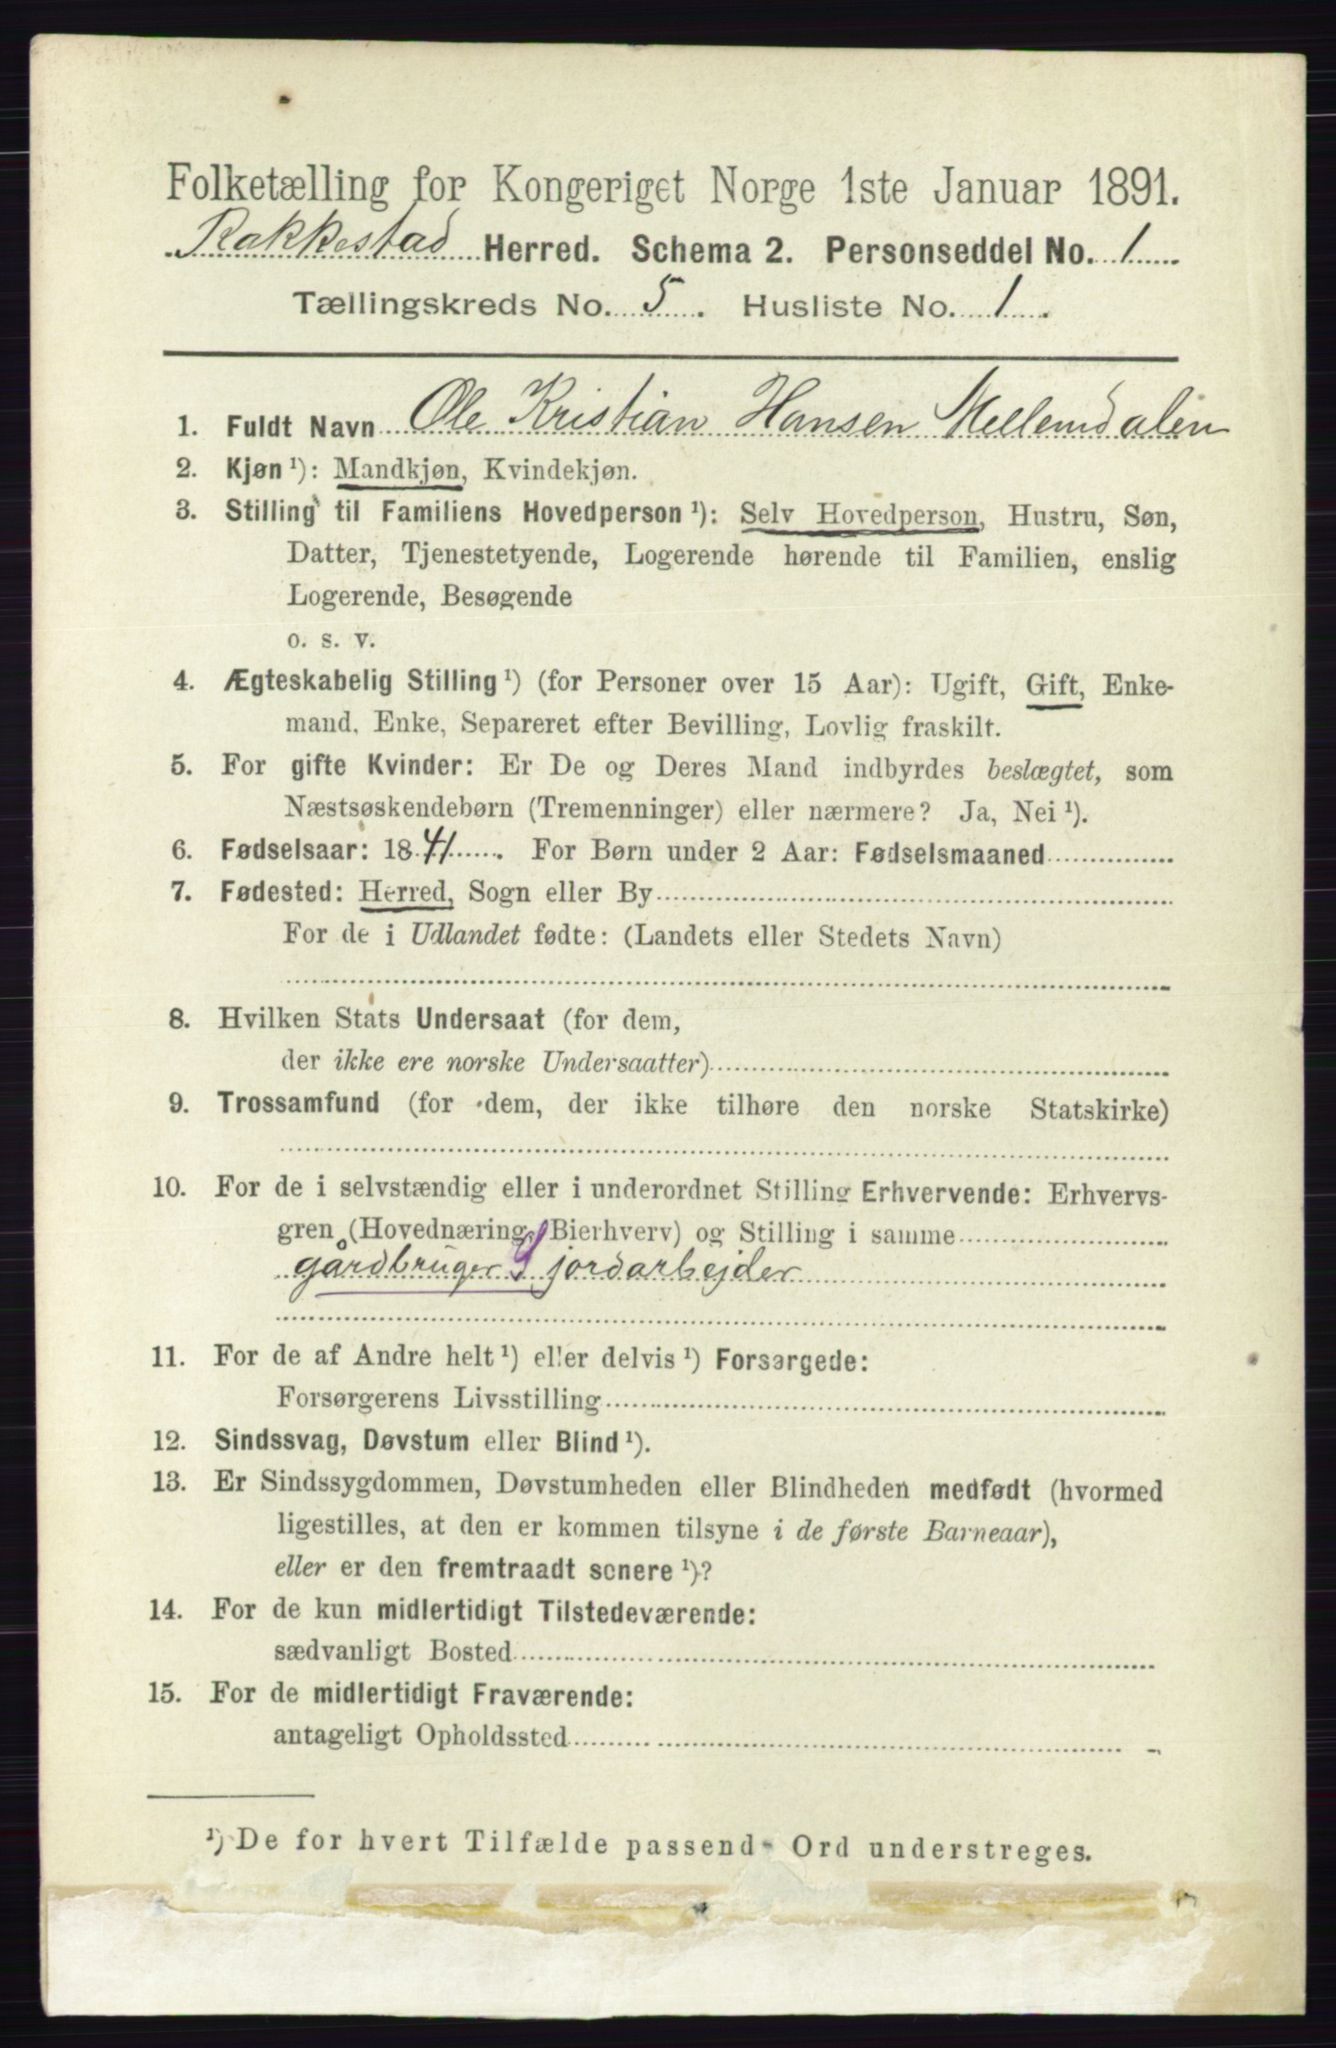 Folketælling for Kongeriget Norge 1ste Januar 1891.
Rakkestad Herred. Schema 2. Personseddel No. 1
Tællingskreds No. 5. Husliste No. 1.
1. Fuldt Navn Ole Kristian Hansen Mellemdalen
2. Kjøn ¹): Mandkjøn, Kvindekjøn.
3. Stilling til Familiens Hovedperson ¹): Selv Hovedperson, Hustru, Søn,
Datter, Tjenestetyende, Logerende hørende til Familien, enslig
Logerende, Besøgende
o. s. v.
4. Ægteskabelig Stilling ¹) (for Personer over 15 Aar): Ugift, Gift, Enke-
mand, Enke, Separeret efter Bevilling, Lovlig fraskilt.
5. For gifte Kvinder: Er De og Deres Mand indbyrdes beslægtet, som
Næstsøskendebørn (Tremenninger) eller nærmere? Ja, Nei ¹).
6. Fødselsaar: 1841. For Børn under 2 Aar: Fødselsmaaned
7. Fødested: Herred, Sogn eller By
For de i Udlandet fødte: (Landets eller Stedets Navn)
8. Hvilken Stats Undersaat (for dem,
der ikke ere norske Undersaatter)
9. Trossamfund (for dem, der ikke tilhøre den norske Statskirke)
10. For de i selvstændig eller i underordnet Stilling Erhvervende: Erhvervs-
gren (Hovednæring, Bierhverv) og Stilling i samme
gårdbruger S jordarbejder
11. For de af Andre helt ¹) eller delvis ¹) Forsørgede:
Forsørgerens Livsstilling
12. Sindssvag, Døvstum eller Blind ¹).
13. Er Sindssygdommen, Døvstumheden eller Blindheden medfødt (hvormed
ligestilles, at den er kommen tilsyne i de første Barneaar),
eller er den fremtraadt senere ¹)?
14. For de kun midlertidigt Tilstedeværende:
sædvanligt Bosted
15. For de midlertidigt Fraværende:
antageligt Opholdssted
¹) De for hvert Tilfælde passende Ord understreges.